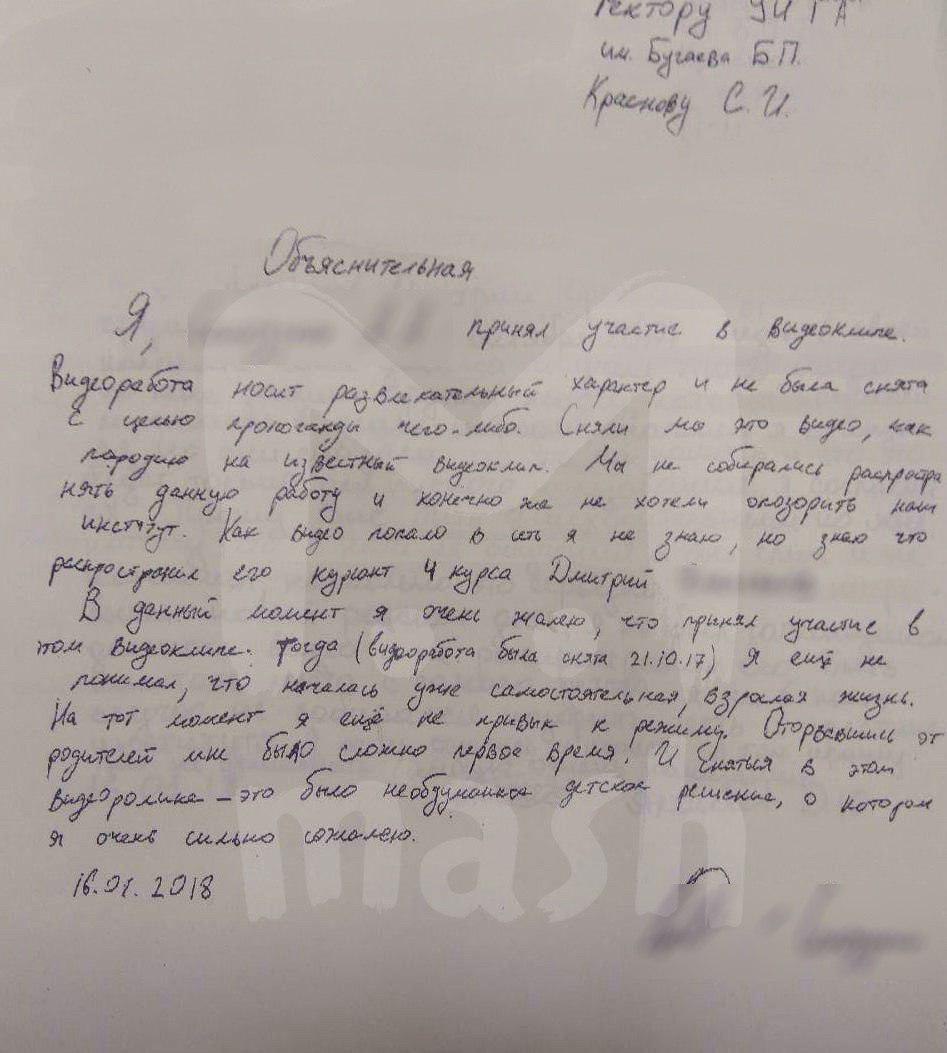 Ректору УИ ГА
им. Бугаева Б.П.
Краснову С.И.
Объяснительная
Я, принял участие в видеоклипе.
Видеоработа носит развлекательный характер и не была снята
с целью пропоганды чего-либо. Сняли мы это видео, как
пародию на известный видеоклип. Мы не собирались распростра
нять данную работу и конечно же не хотели опозорить наш
институт. Как видео попало в сеть я не знаю, но знаю что
распространил его курсант 4 курса Дмитрий
В данный момент я очень жалею, что принял участие в
этом видеоклипе. Тогда (видеоработа была снята 21.10.17) я ещё не
понимал, что началась уже самостоятельная, взрослая жизнь.
На тот момент я ещё не привык к режиму. Оторвавшись от
родителей мне было сложно первое время. И сняться в этом
видеоролике - это было необдуманное детское решение, о котором
я очень сильно сожалею.
16.01.2018
mash